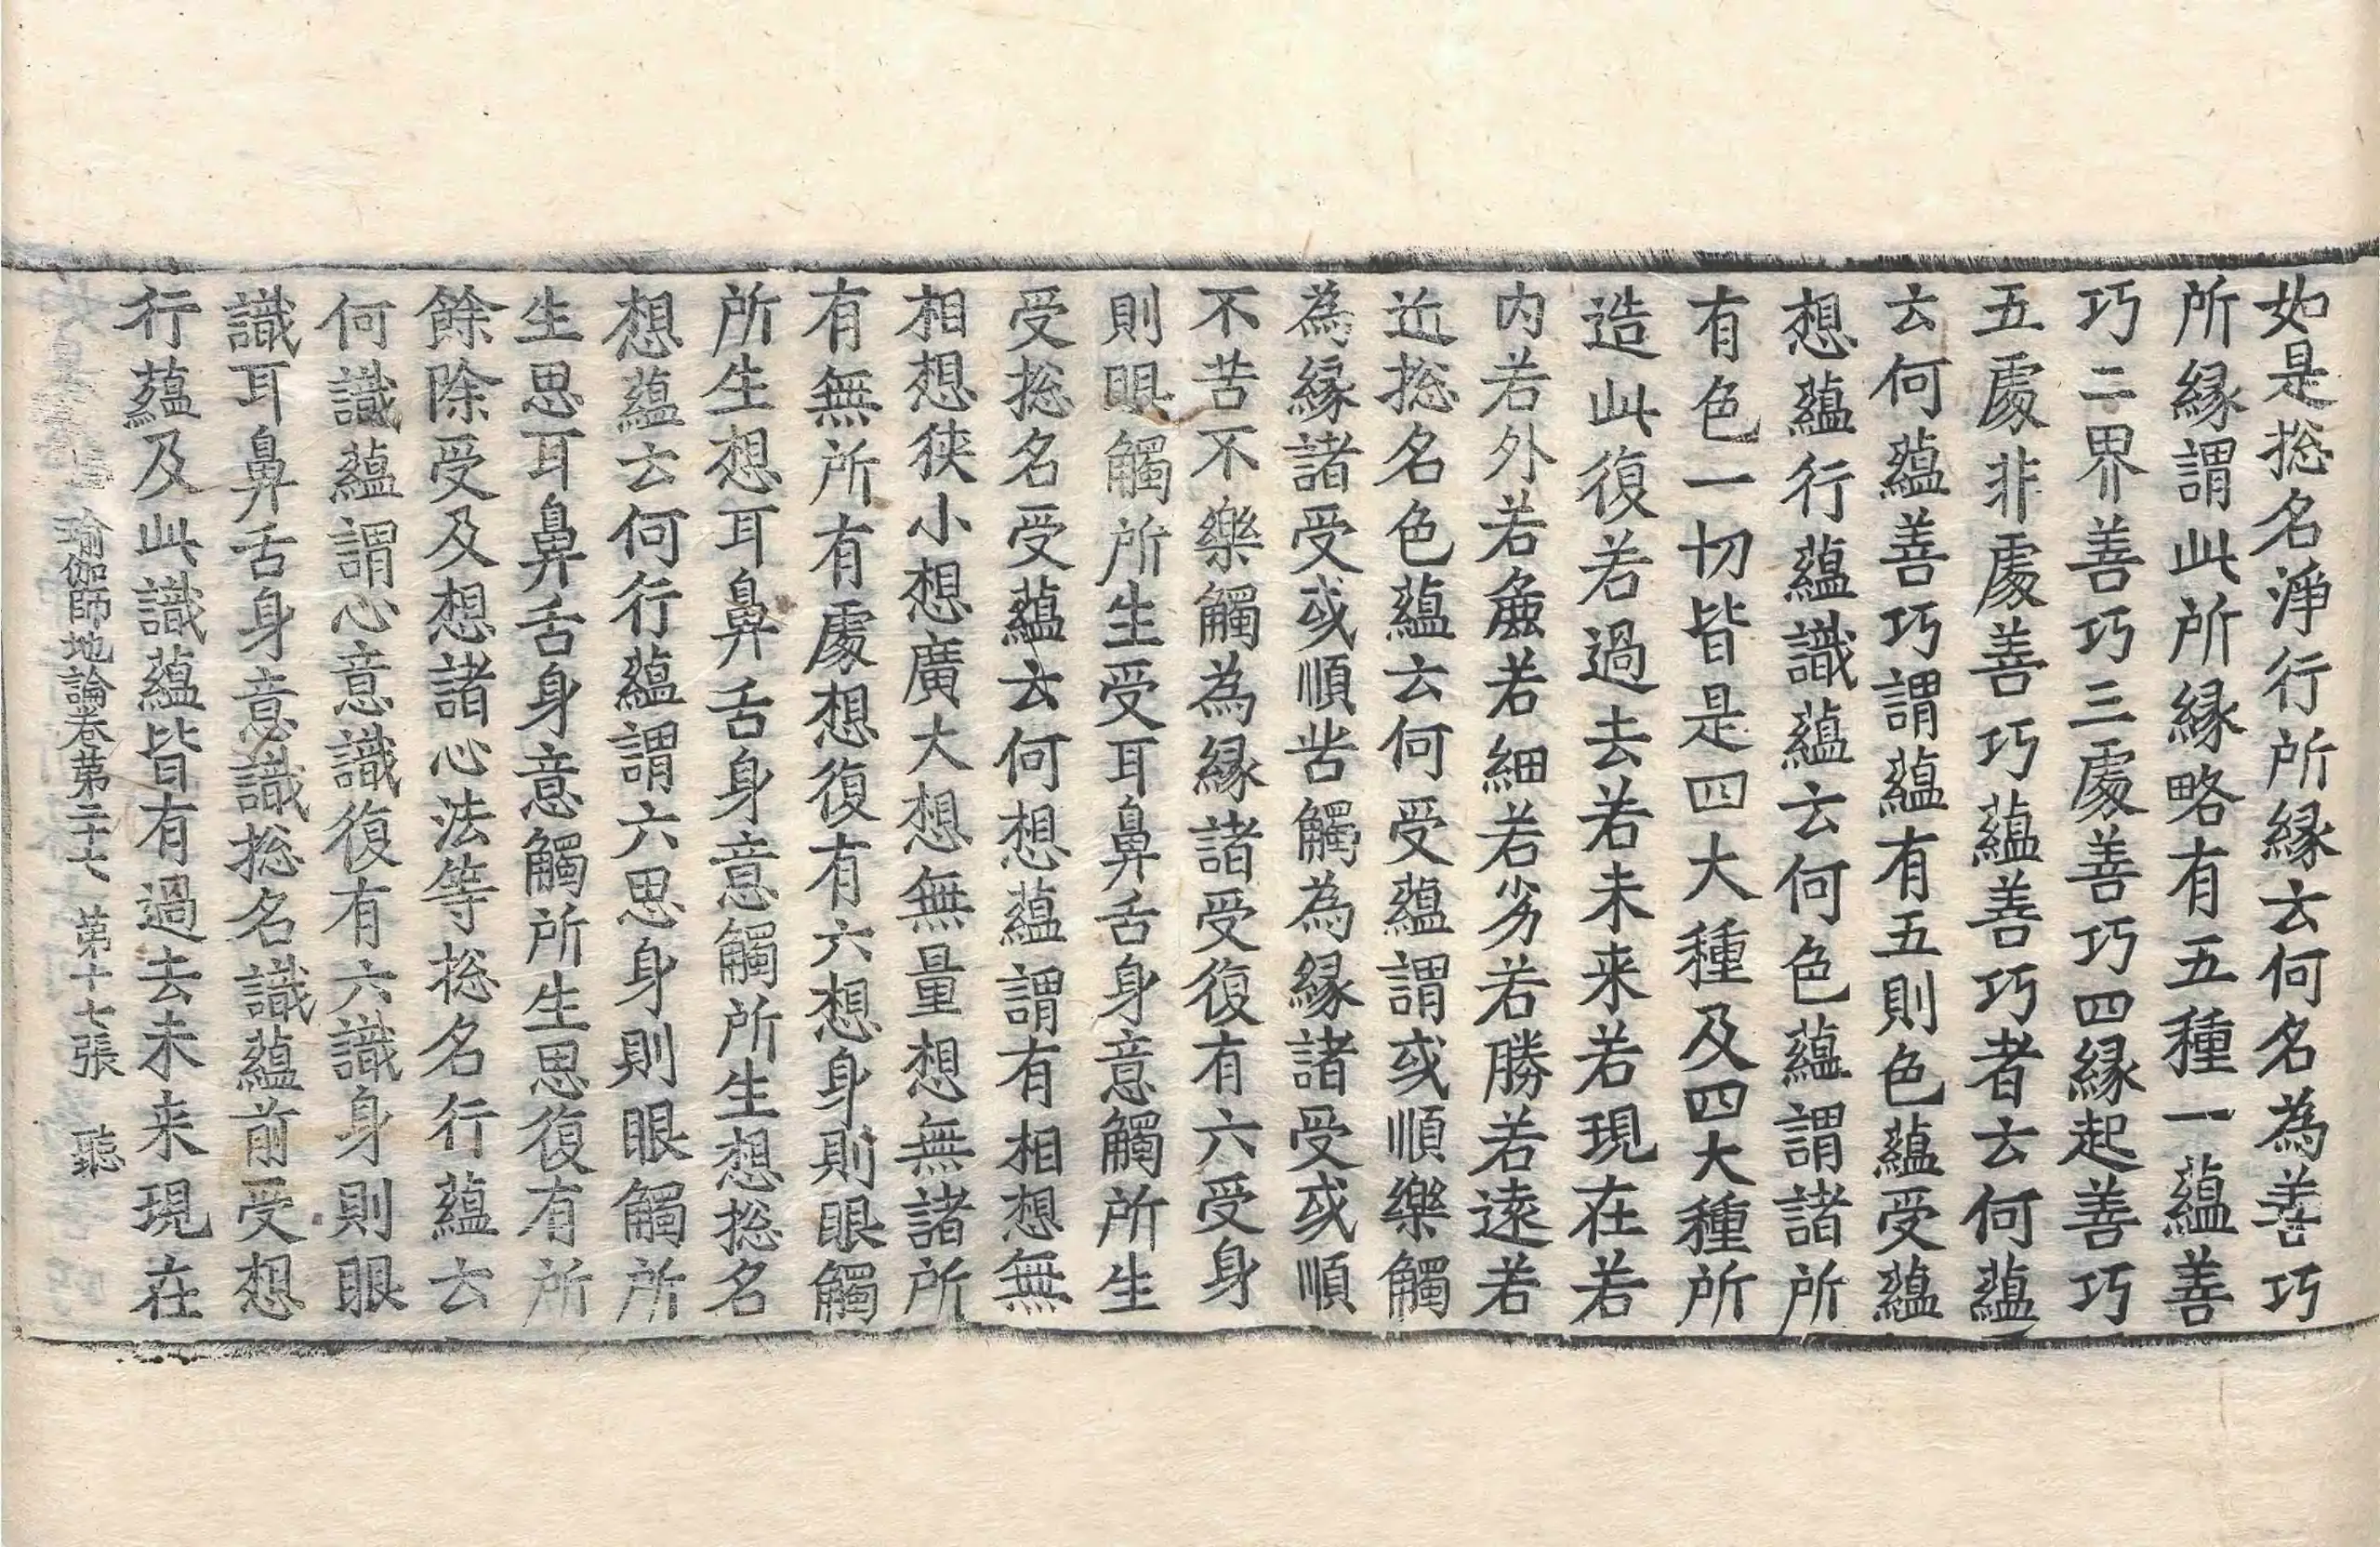 如是捴名淨行所縁云何名為善巧
所縁謂此所縁略有五種一蘊善
巧二界善巧三處善巧四縁起善巧
五處非處善巧蘊善巧者云何蘊
云何蘊善巧謂蘊有五則色蘊受蘊
想蘊行蘊識蘊云何色蘊謂諸所
有色一切皆是四大種及四大種所
造此復若過去若未来若現在若
内若外若麁若細若劣若勝若遠若
近捴名色蘊云何受蘊謂或順樂觸
為縁諸受或順苦觸為縁諸受或順
不苦不樂觸為縁諸受復有六受身
則眼觸所生受耳鼻舌身意觸所生
受捴名受蘊云何想蘊謂有相想無
相想狹小想廣大想無量想無諸所
有無所有處想復有六想身則眼觸
所生想耳鼻舌身意觸所生想捴名
想蘊云何行蘊謂六思身則眼觸所
生思耳鼻舌身意觸所生思復有所
餘除受及想諸心法等捴名行蘊云
何識蘊謂心意識復有六識身則眼
識耳鼻舌身意識捴名識蘊前受想
行蘊及此識蘊皆有過去未来現在
瑜伽師地論卷第二十七 第十七張 聽